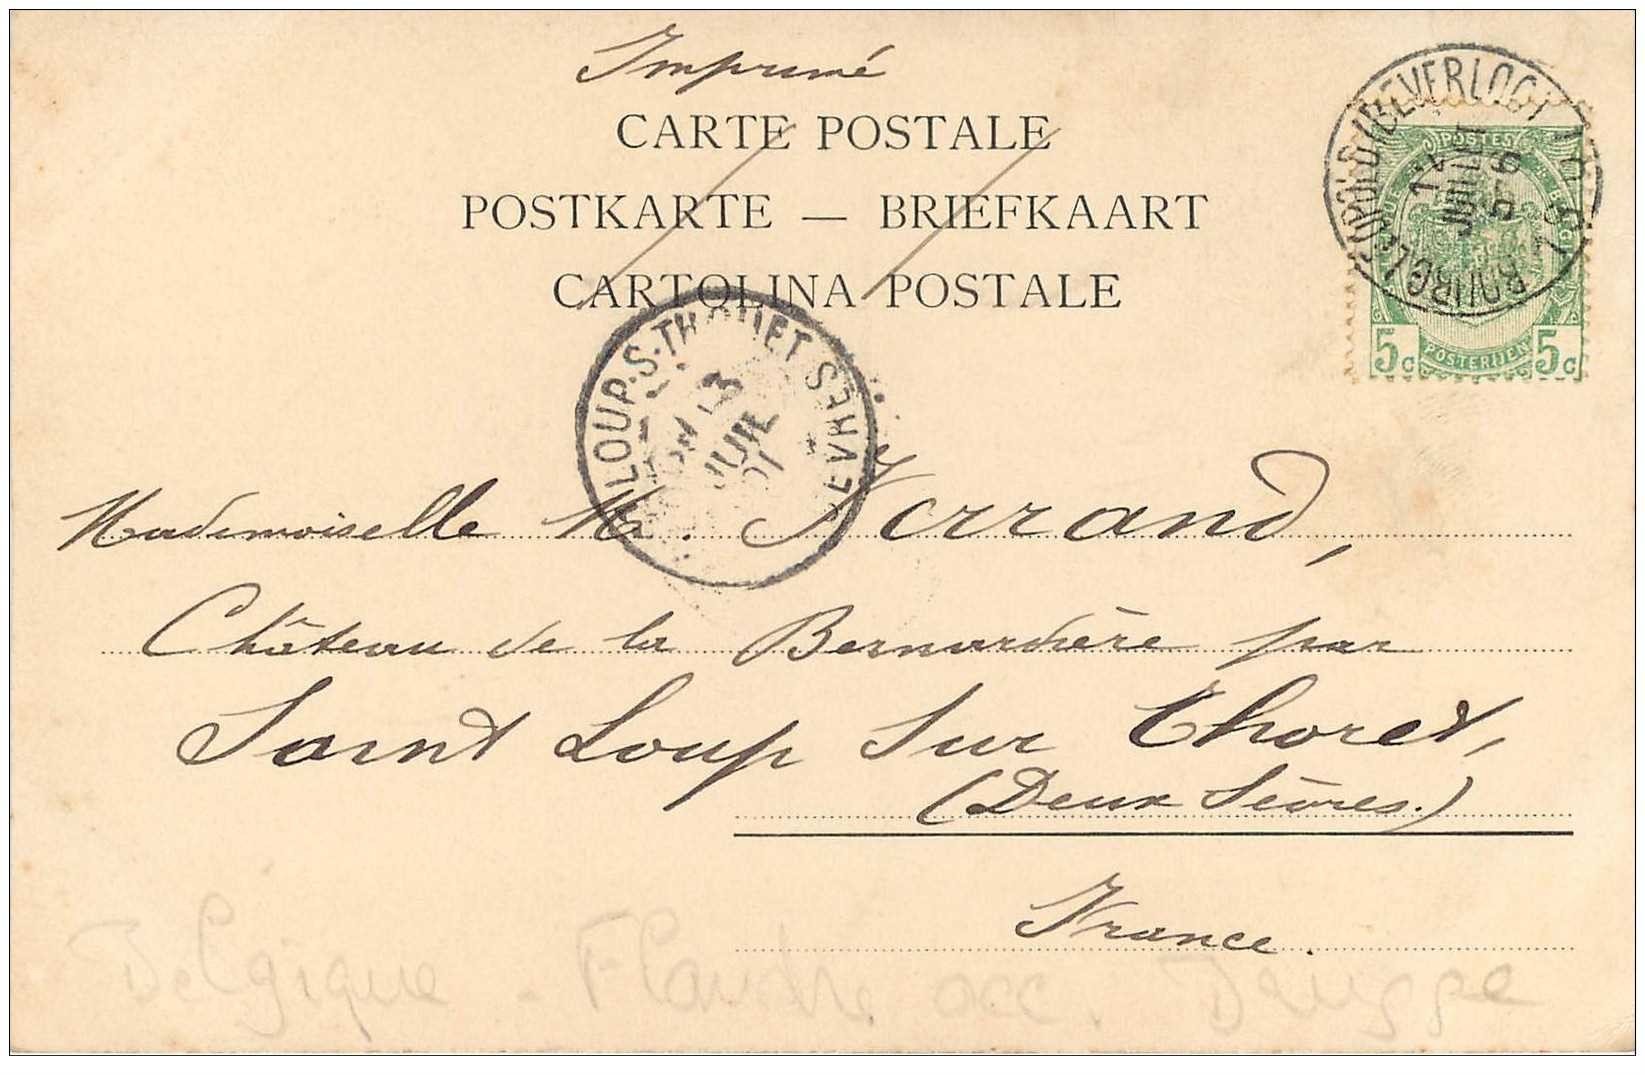 Imprimé
CARTE POSTALE
POSTKARTE — BRIEFKAART
CARTOLINA POSTALE
BOURG-LEOPOLD (BEVERLOO)
12
JUIL
POSTES
5c POSTERIJEN 5c
LOUP-S-THOUET SEVRES
13
JUIL
01
Mademoiselle M. Ferrand,
Château de la Bernardière par
Saint Loup Sur Thoret,
(Deux Sèvres.)
France.
Belgique - Flandre occ.